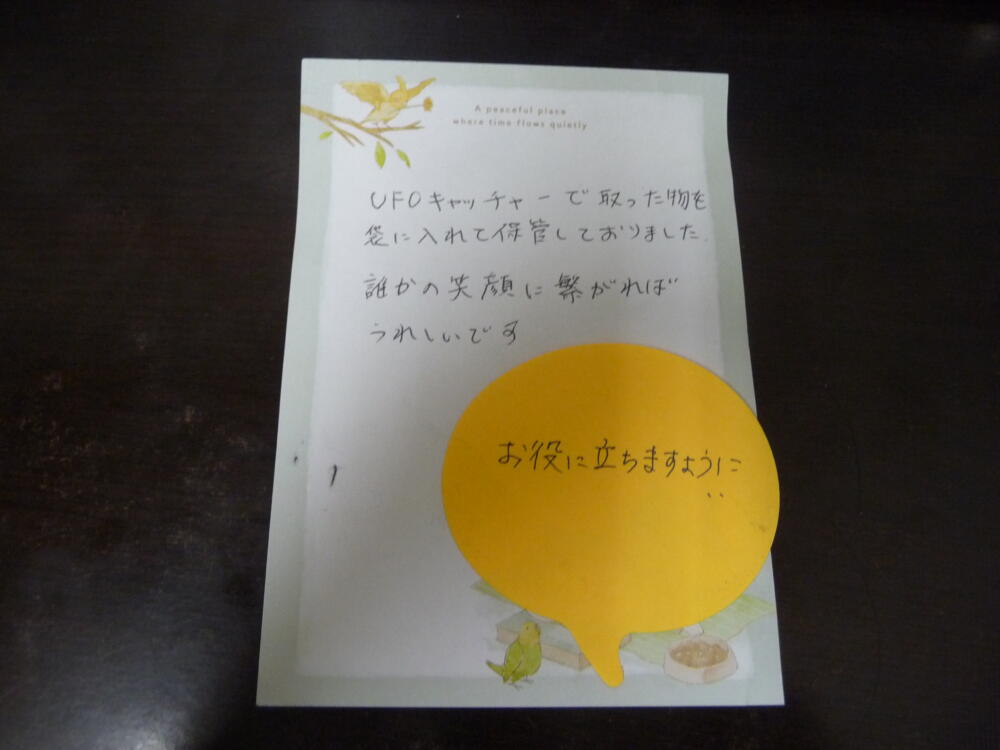 A peaceful place
where time flows quietly
UFOキャッチャーで取った物を
袋に入れて保管しておりました。
誰かの笑顔に繋がれば
うれしいです
お役に立ちますように